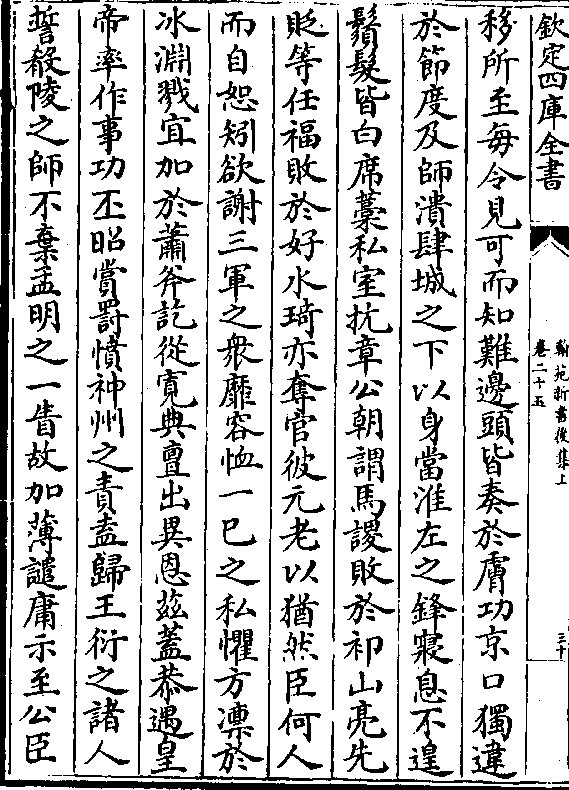 欽定四庫全書
翰苑新書後集上
卷二十五
三十
移所至每令見可而知難邊頭皆奏於膚功京口獨違
於節度及師潰肆城之下以身當淮左之鋒寢息不遑
鬚髮皆白席藁私室抗章公朝謂馬謖敗於祁山亮先
貶等任福敗於好水琦亦奪官彼元老以猶然臣何人
而自恕矧欲謝三軍之衆靡容恤一已之私懼方凛於
冰淵戮宜加於蕭斧訖從寛典亶出異恩兹蓋恭遇皇
帝率作事功丕昭賞罰憤神州之責盍歸王衍之諸人
誓殽陵之師不棄孟明之一眚故加薄譴庸示至公臣